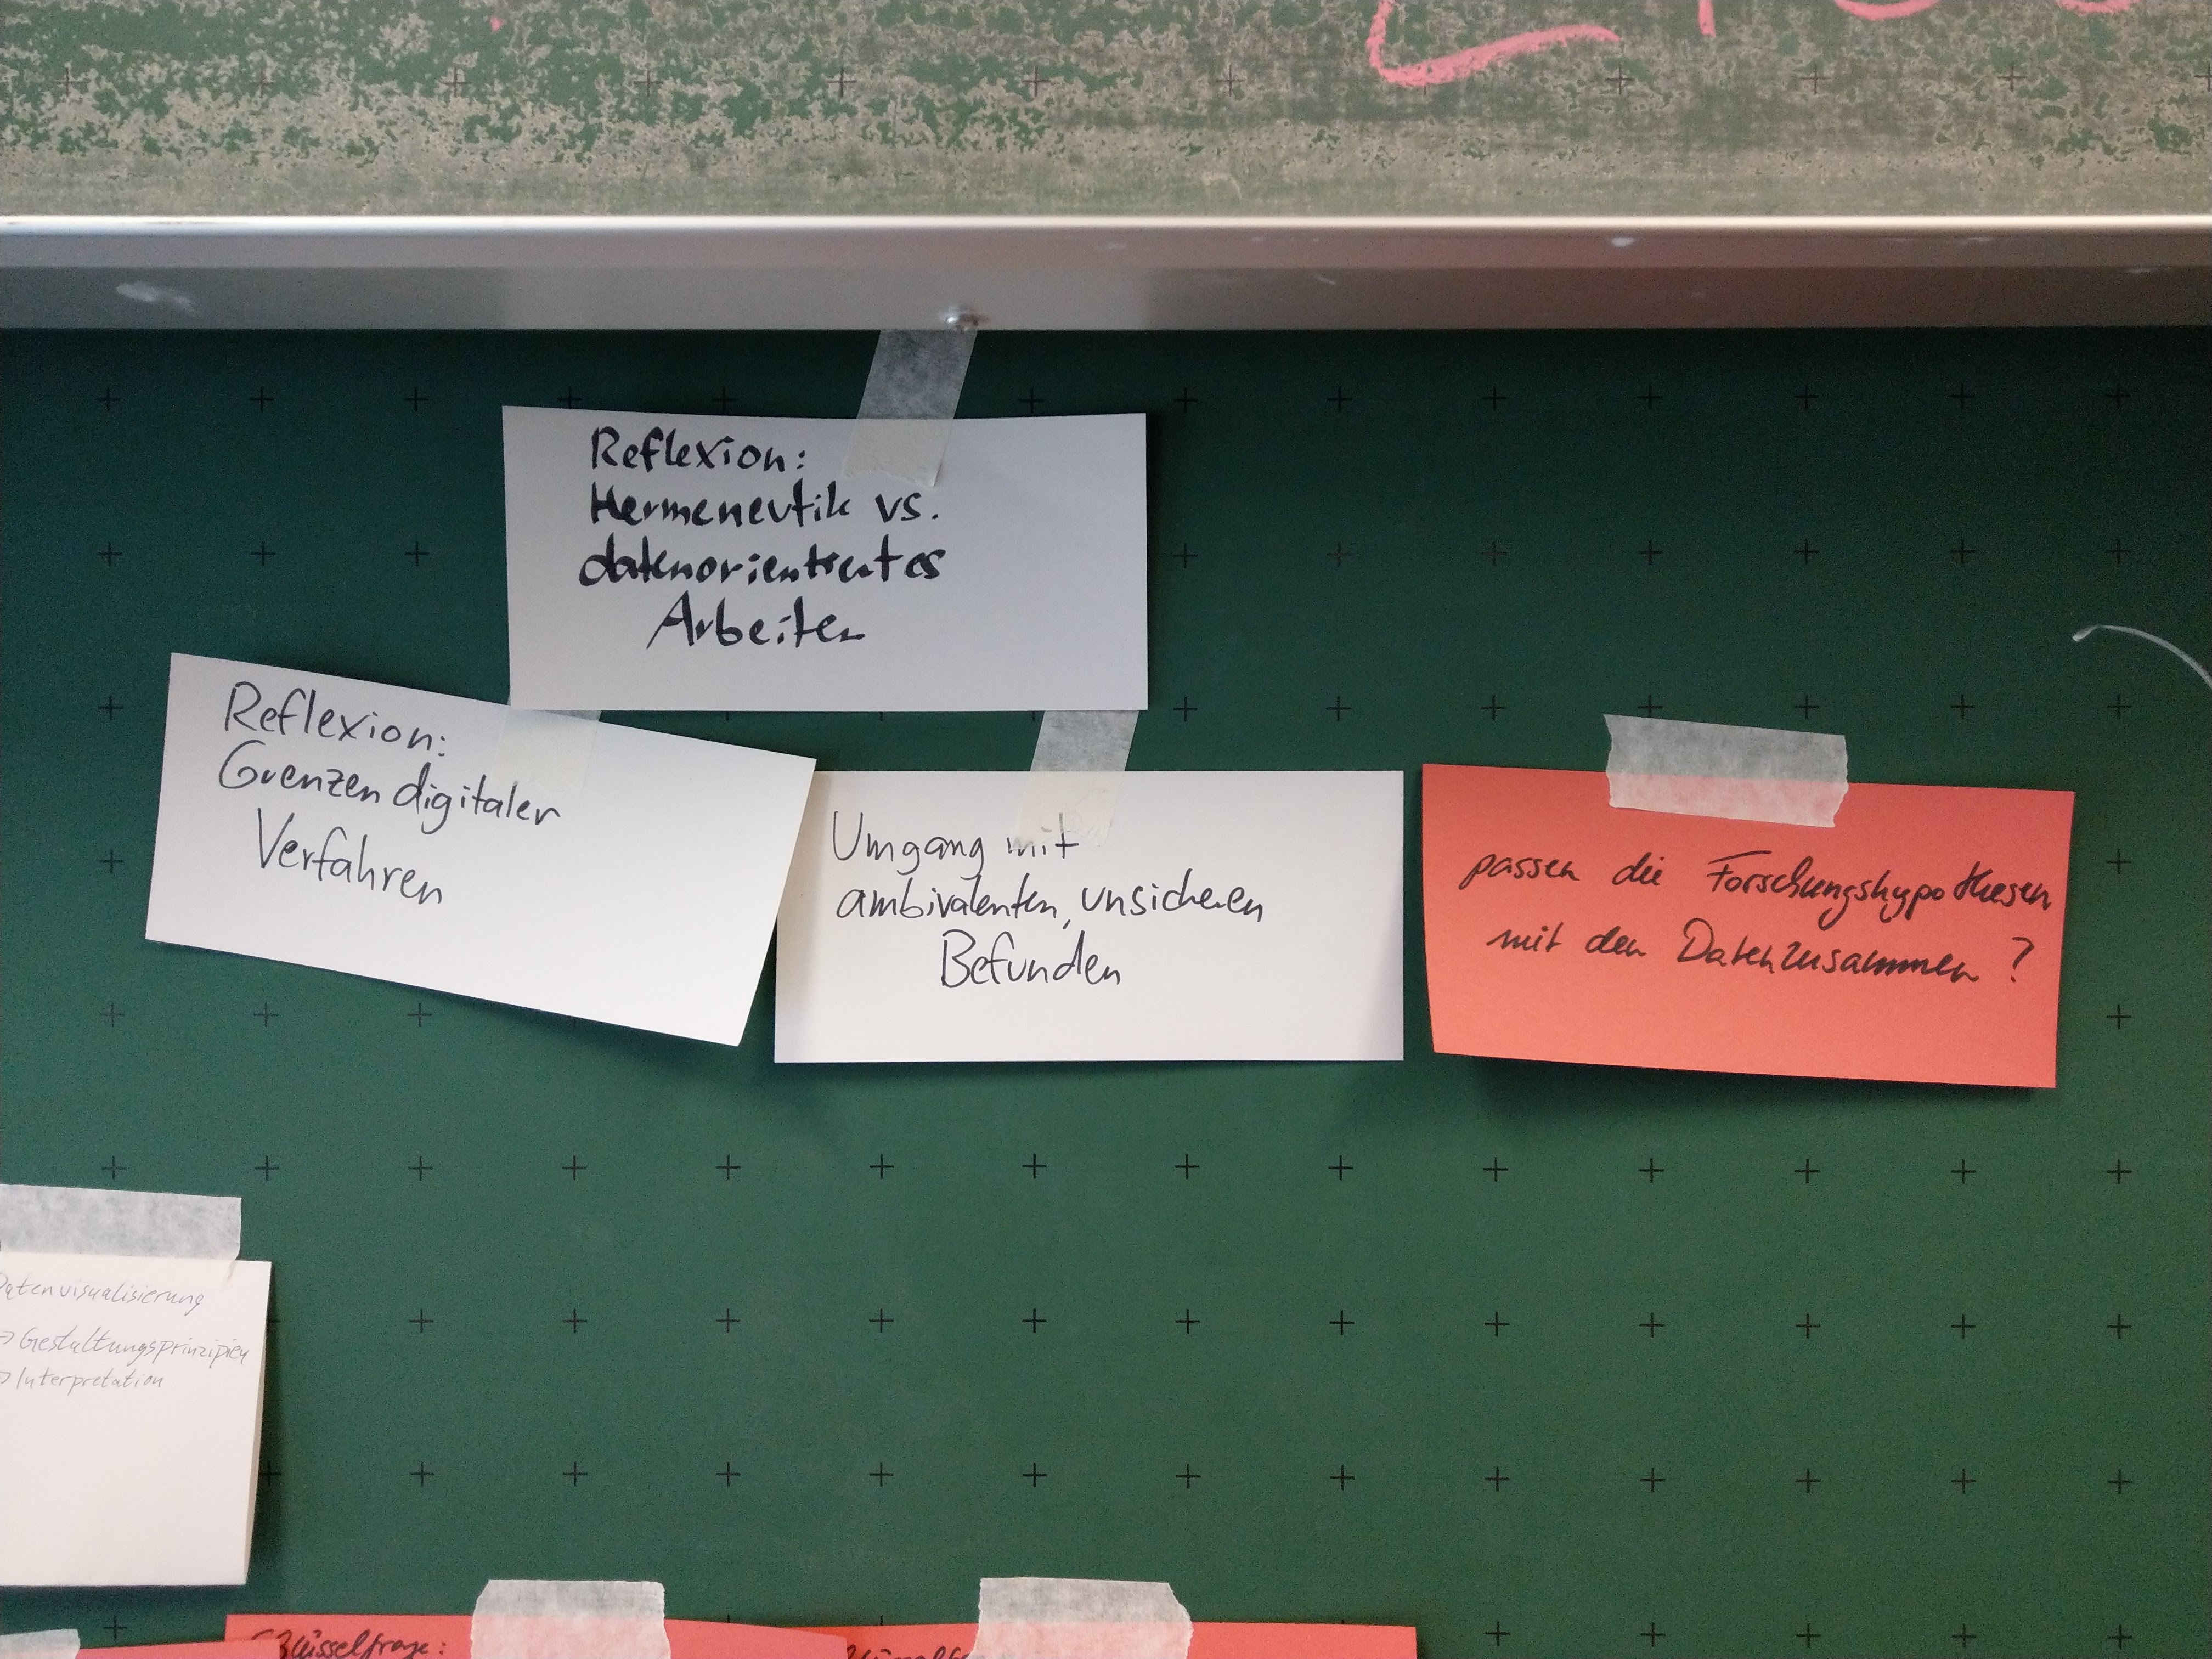 Reflexion:
Hermeneutik vs.
datenorientiertes
Arbeiten
Reflexion:
Grenzen digitaler
Verfahren
Umgang mit
ambivalenten, unsicheren
Befunden
passen die Forschungshypothesen
mit den Daten zusammen?
Datenvisualisierung
→ Gestaltungsprinzipien
→ Interpretation